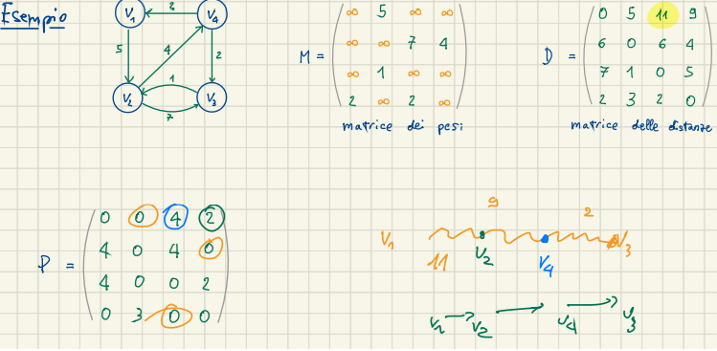 Esempio
V1 2 V4
5 4 2
1
V2 V3
7
M =
∞ 5 ∞ ∞
∞ ∞ 7 4
∞ 1 ∞ ∞
2 ∞ 2 ∞
matrice dei pesi
D =
0 5 11 9
6 0 6 4
7 1 0 5
2 3 2 0
matrice delle distanze
P =
0 0 4 2
4 0 4 0
4 0 0 2
0 3 0 0
9 2
V1 V3
11 V2 V4
V1 → V2 → V4 → V3